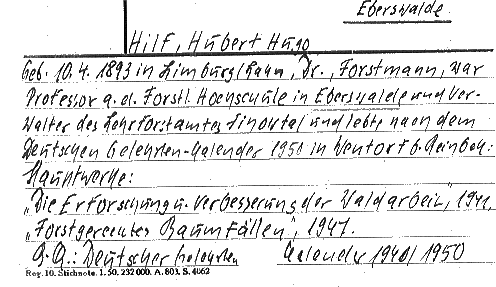 Eberswalde
Hilf, Hubert Hugo
Geb. 10.4.1893 in Limburg/Lahn, Dr., Forstmann, war
Professor a.d. Forstl. Hochschule in Eberswalde und Ver-
walter des Lehrforstamtes Finowtal und lebte nach dem
Deutschen Gelehrten-Kalender 1950 in Wentorf b. Reinbek:
Hauptwerke:
"Die Erforschung u. Verbesserung der Waldarbeit", 1941,
"Forstgerechtes Baumfällen", 1941.
Q.A.: Deutscher Gelehrten Kalender 1940/1950
Reg. 10. Stichnote. 1. 50. 232 000. A. 803. S. 4062